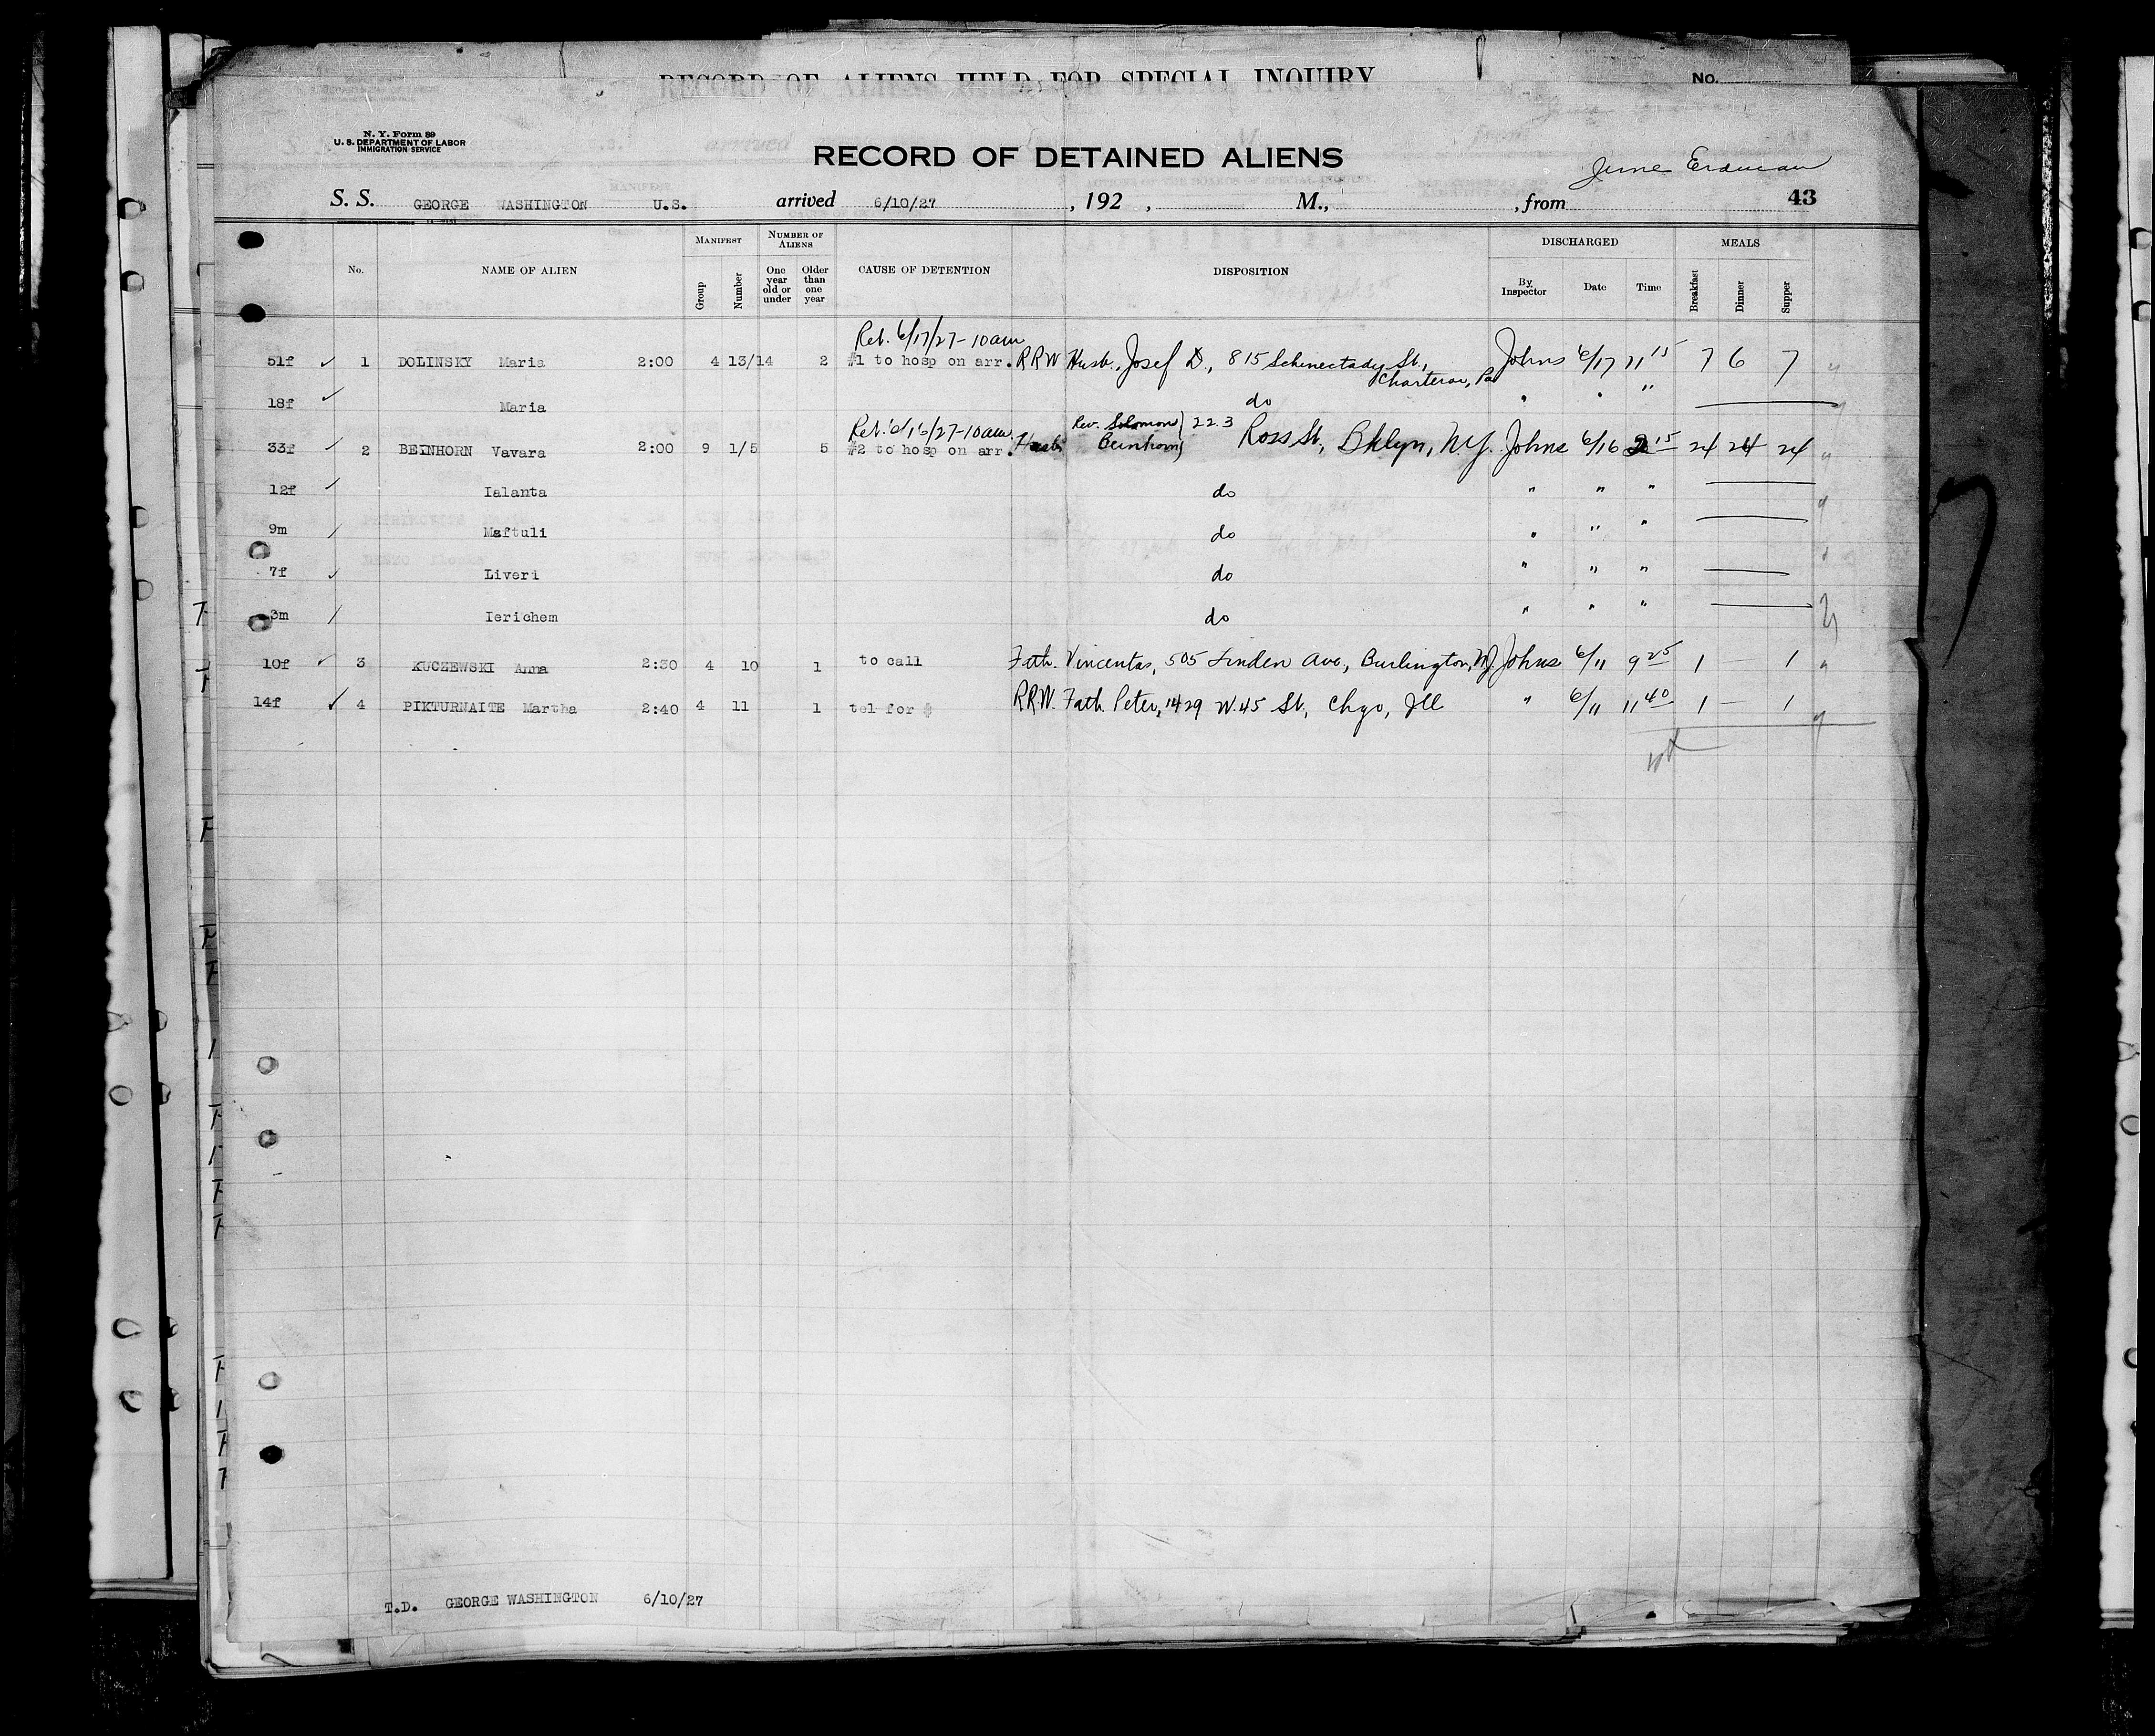 RECORD OF ALIENS HELD FOR SPECIAL INQUIRY.
No.
N. Y. Form 89
U. S. DEPARTMENT OF LABOR
IMMIGRATION SERVICE
RECORD OF DETAINED ALIENS
June Erdman
S. S. GEORGE WASHINGTON U.S. arrived 6/10/27, 192 , M., , from 43
No. NAME OF ALIEN MANIFEST Group Number NUMBER OF ALIENS One year old or under Older than one year CAUSE OF DETENTION DISPOSITION DISCHARGED By Inspector Date Time MEALS Breakfast Dinner Supper
Ret. 6/17/27-10am
51f ✓ 1 DOLINSKY Maria 2:00 4 13/14 2 #1 to hosp on arr. RRW Husb. Josef D., 815 Schenectady St., Johns 6/17 11 15 7 6 7
Charleroi, Pa
18f ✓ Maria do " " "
Ret. 6/16/27-10am Rev. Solomon } 223
33f ✓ 2 BEINHORN Vavara 2:00 9 1/5 5 #2 to hosp on arr. Husb Beinhorn Ross St., Bklyn, N.Y. Johns 6/16 2 15 24 24 24
12f ✓ Ialanta do " " "
9m / Maftuli do " " "
7f ✓ Liveri do " " "
3m / Ierichem do " " "
10f ✓ 3 KUCZEWSKI Anna 2:30 4 10 1 to call Fath. Vincentas, 505 Linden Ave, Burlington, NJ. Johns 6/11 9 25 1 — 1
14f ✓ 4 PIKTURNAITE Martha 2:40 4 11 1 tel for $ RRW. Fath. Peter, 1429 W. 45 St., Chgo, Ill " 6/11 11 40 1 — 1
T.D. GEORGE WASHINGTON 6/10/27